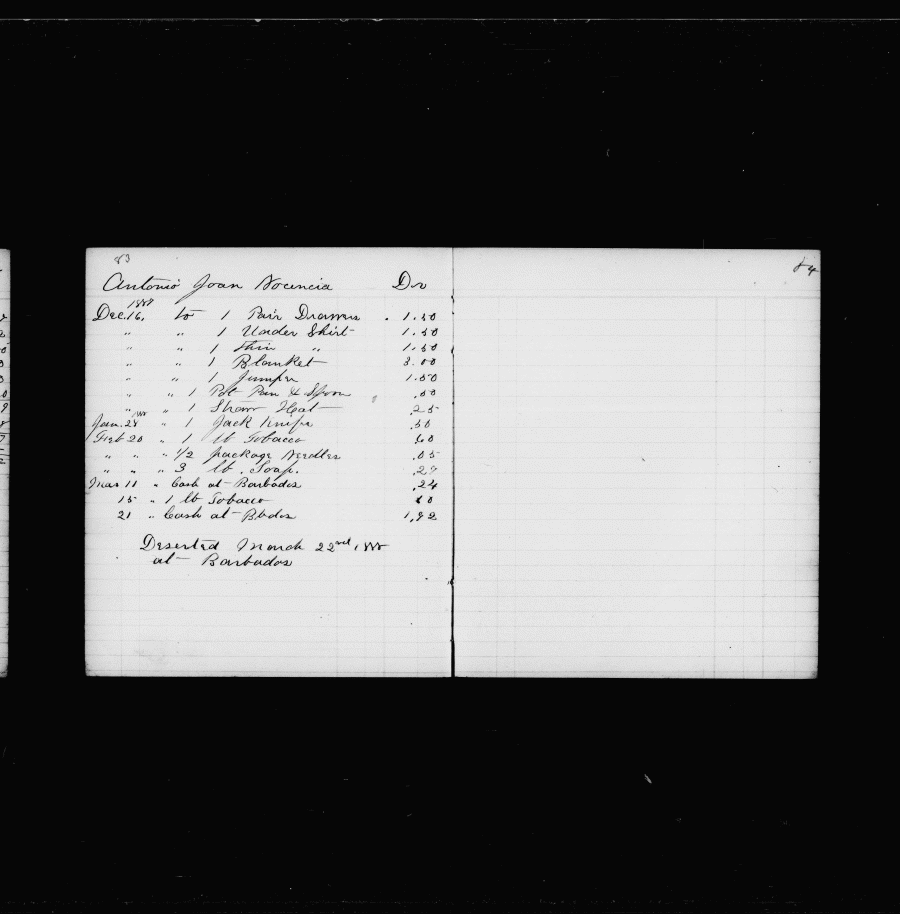 83
Antonio Joan Nocencia Dr
1887
Dec. 16, to 1 Pair Drawers . 1.50
" " 1 Under Shirt 1.50
" " 1 Thin " 1.50
" " 1 Blanket 3.00
" " 1 Jumper 1.50
" " 1 Pot Pan & Spoon .50
" " 1 Straw Hat .25
Jan. 28 " 1 Jack Knife .50
Feb 20 " 1 lb Tobacco .60
" " " 1/2 package Needles .05
" " " 3 lb . Soap.
Mar 11 " Cash at Barbados .24
15 " 1 lb Tobacco 60
21 " Cash at B.bdos 1.92
Deserted March 22nd, 1888
at Barbados
84